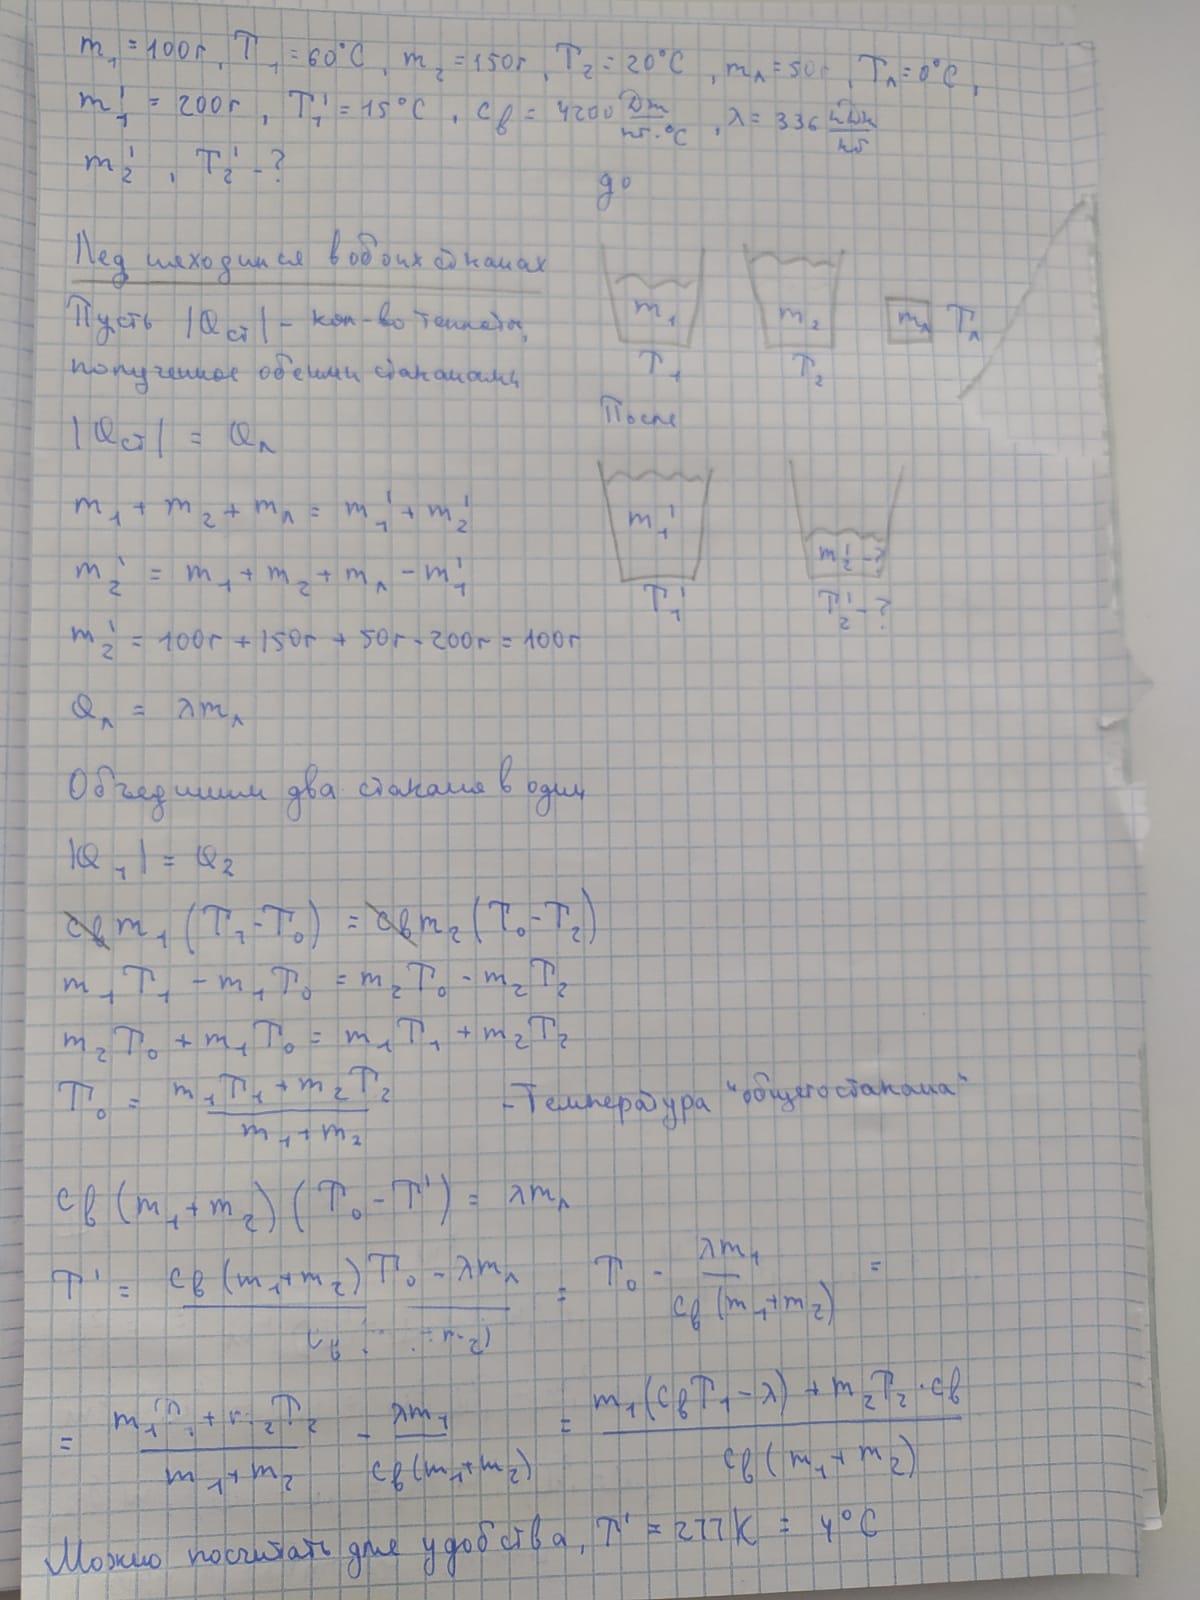 m₁ = 100г, T₁ = 60°C, m₂ = 150г, T₂ = 20°C, mл = 50г, Tл = 0°C,
m₁' = 200г, T₁' = 15°C, cв = 4200 Дж/кг·°C, λ = 336 кДж/кг
m₂', T₂' - ?
до
Лед находится в обоих стаканах
m₁ m₂ mл Tл
T₁ T₂
Пусть |Qст| - кол-во теплоты,
полученное обеими стаканами
После
|Qст| = Qл
m₁ + m₂ + mл = m₁' + m₂'
m₁' m₂' - ?
T₁' T₂' - ?
m₂' = m₁ + m₂ + mл - m₁'
m₂' = 100г + 150г + 50г - 200г = 100г
Qл = λmл
Объединим два стакана в один
|Q₁| = Q₂
cвm₁(T₁ - T₀) = cвm₂(T₀ - T₂)
m₁T₁ - m₁T₀ = m₂T₀ - m₂T₂
m₂T₀ + m₁T₀ = m₁T₁ + m₂T₂
T₀ = (m₁T₁ + m₂T₂)/(m₁ + m₂) - Температура "общего стакана"
cв(m₁ + m₂)(T₀ - T') = λmл
T' = cв(m₁ + m₂)T₀ - λmл = T₀ - λm₁/(cв(m₁ + m₂)) =
= (m₁T₁ + m₂T₂)/(m₁ + m₂) - λm₁/(cв(m₁ + m₂)) = (m₁(cвT₁ - λ) + m₂T₂·cв)/(cв(m₁ + m₂))
Можно посчитать для удобства, T' = 277K = 4°C